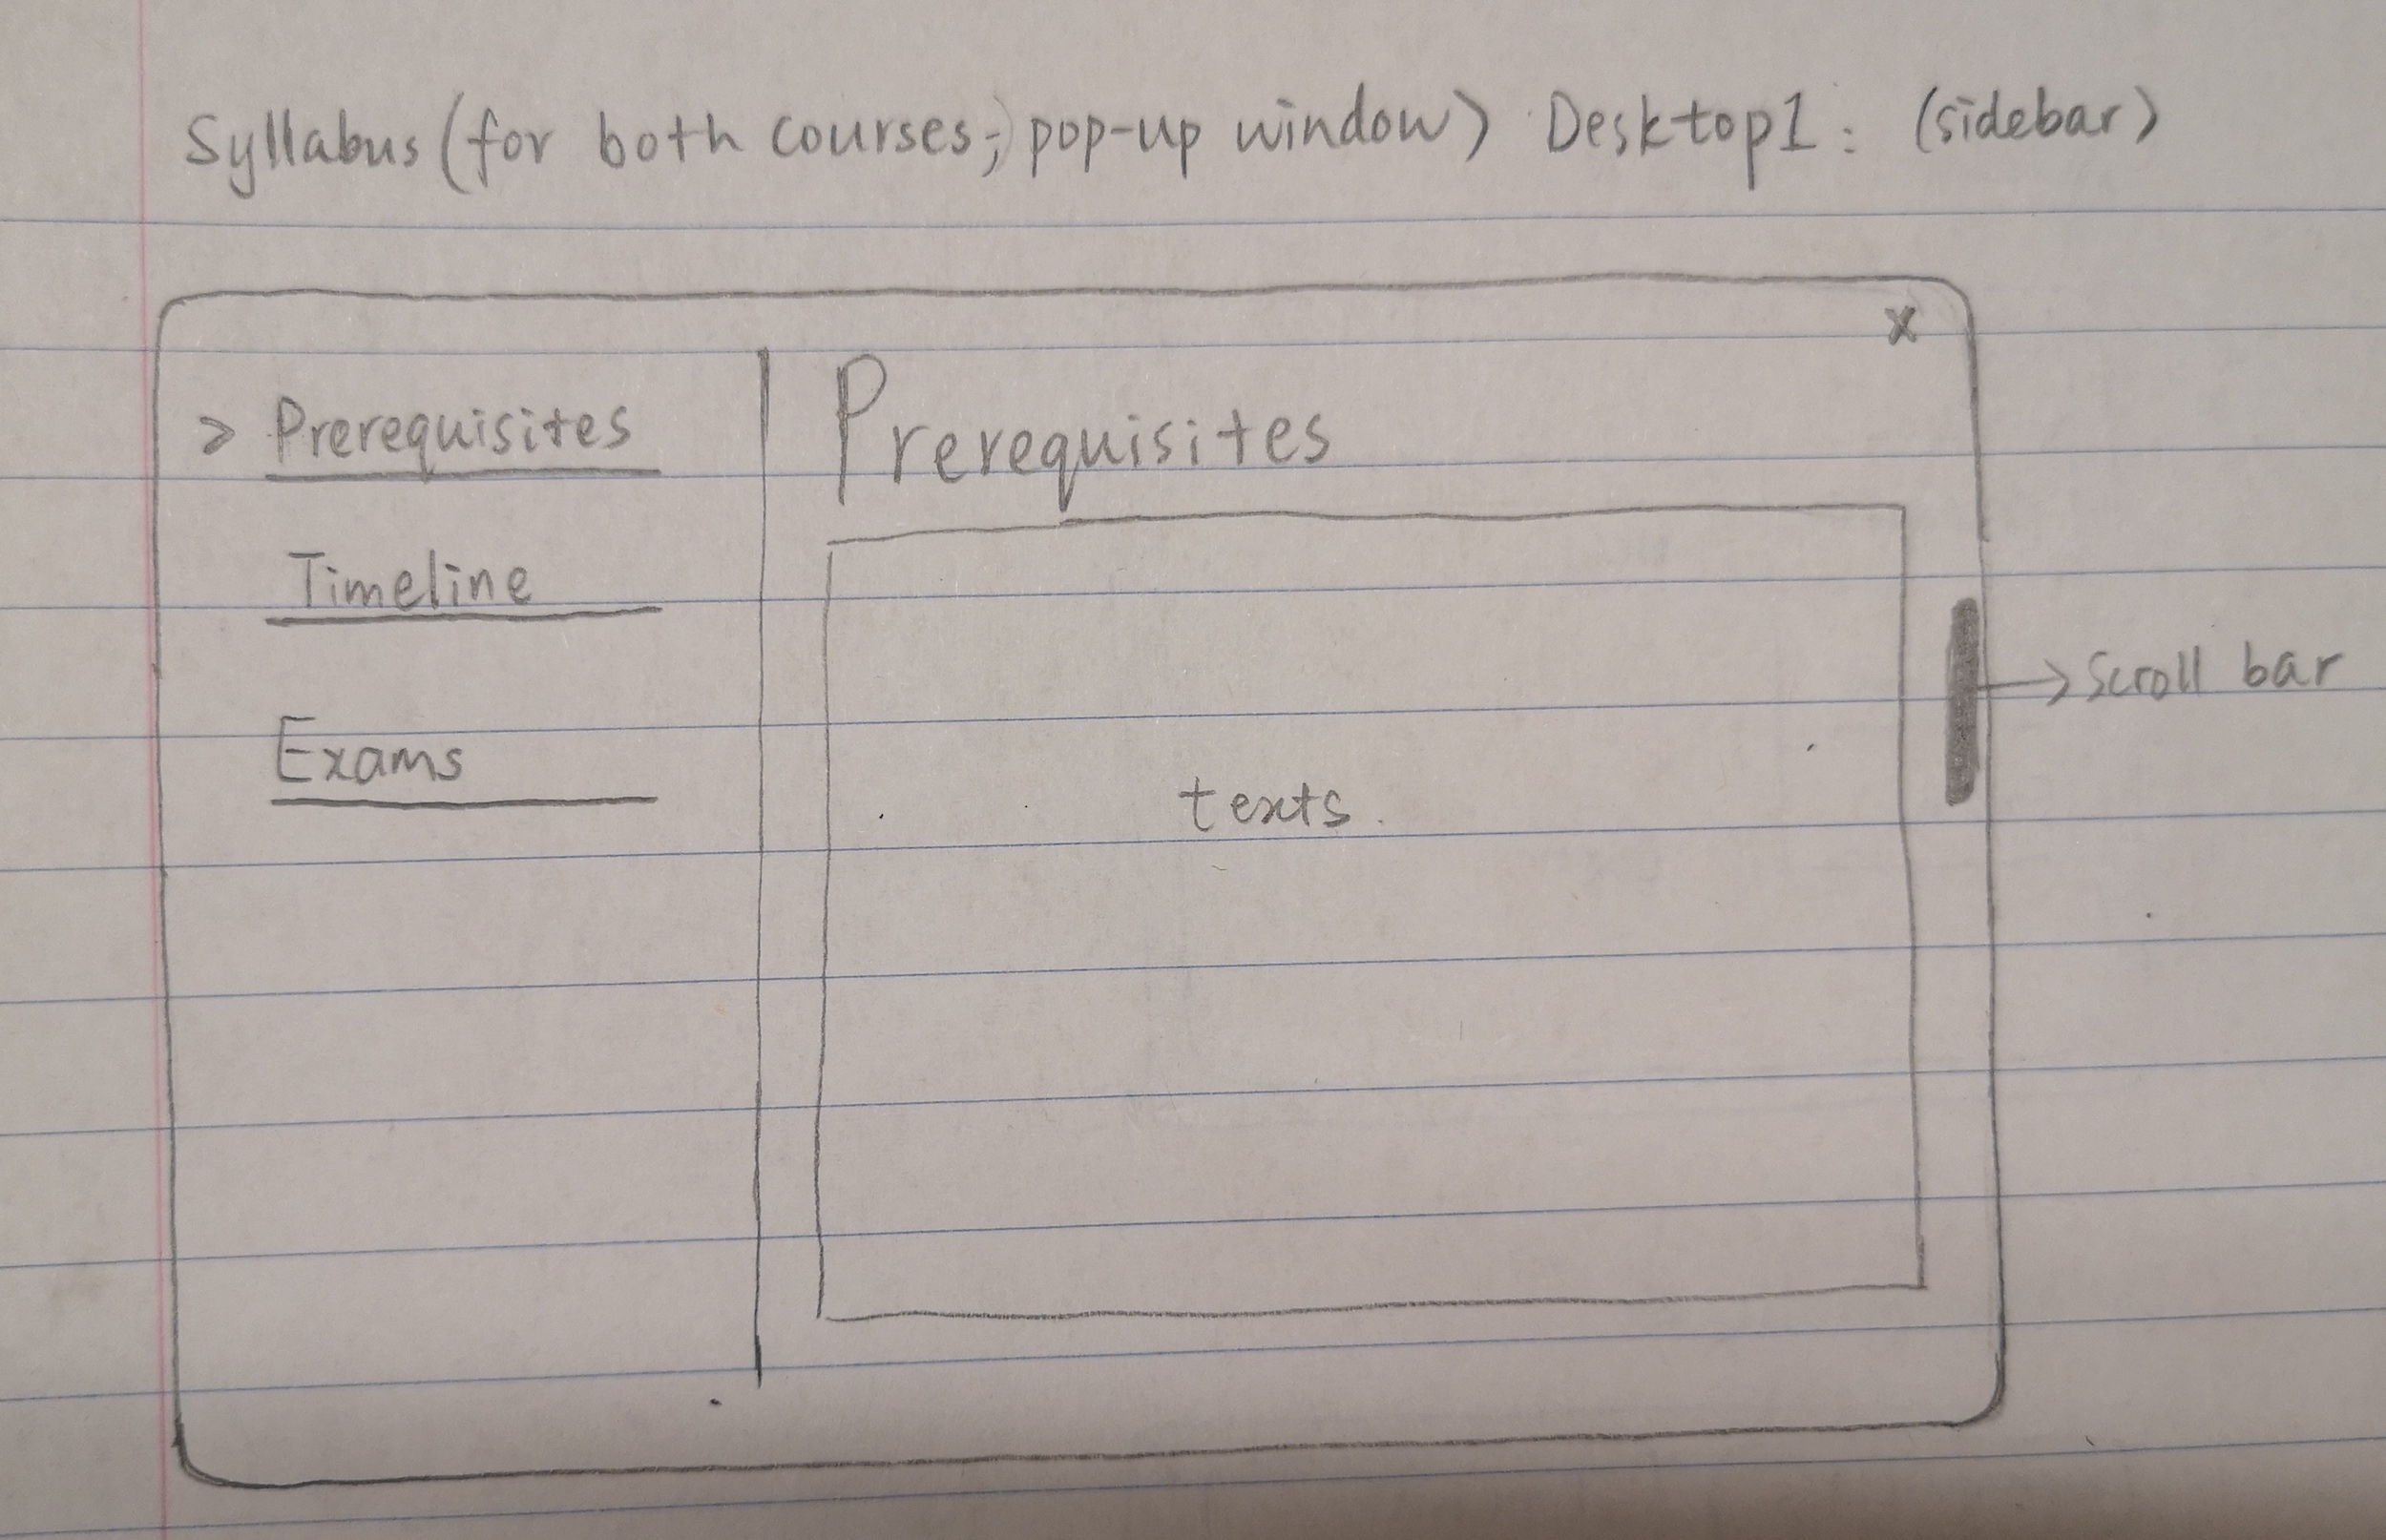 Syllabus (for both courses; pop-up window) Desktop1: (sidebar)
x
> Prerequisites
Timeline
Exams
Prerequisites
texts.
→ Scroll bar